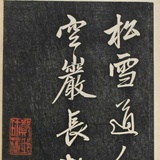 松雪道人
空巖長